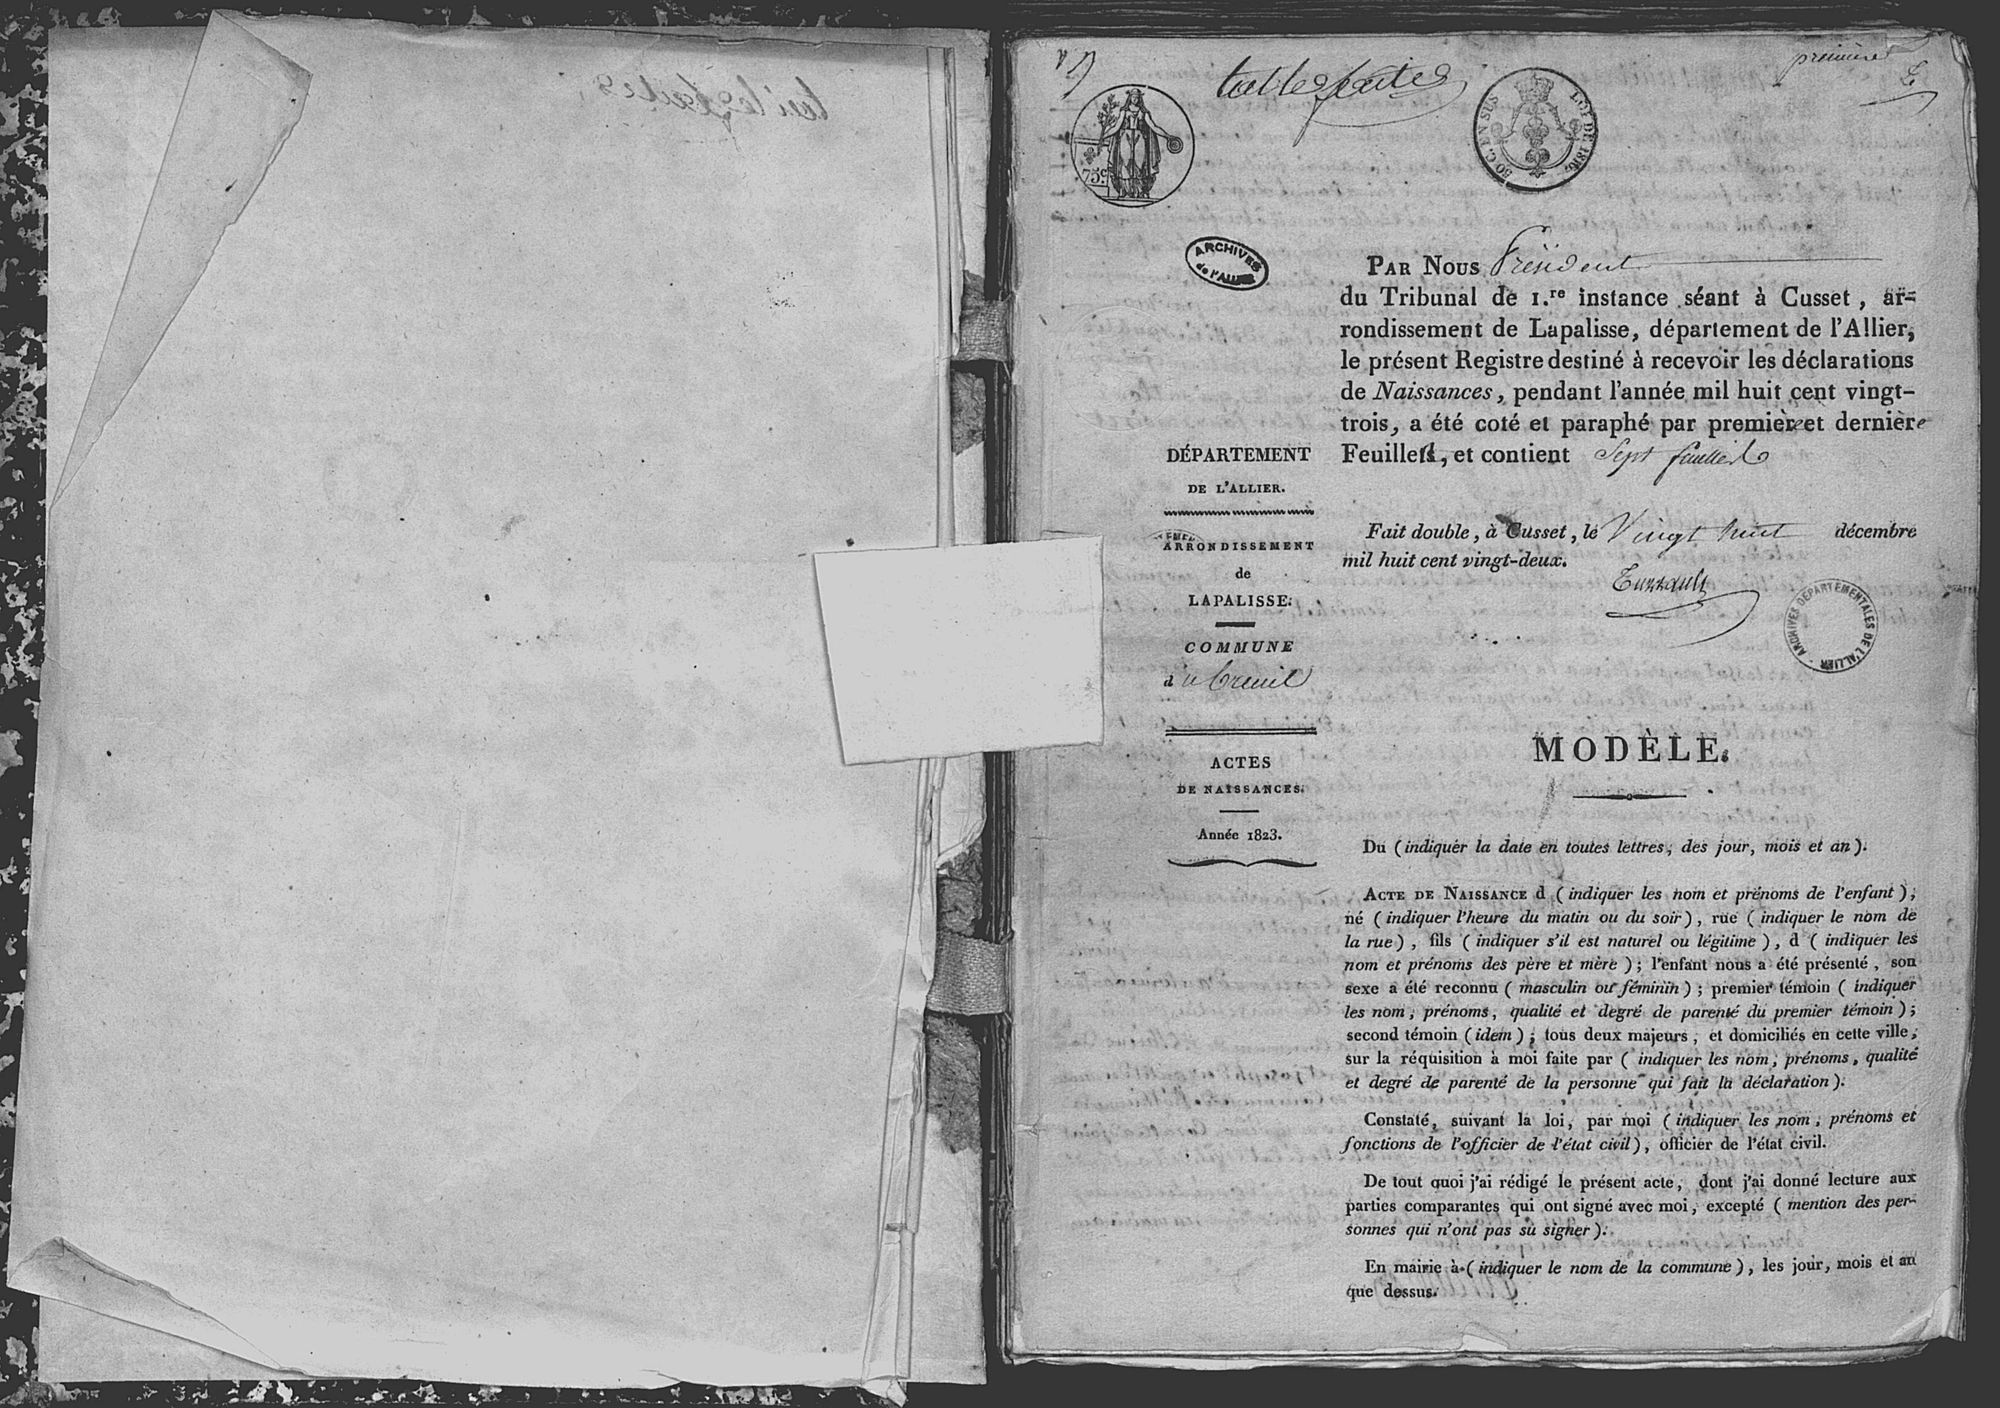 premiere
75c
50 C. EN SUS
LOI DE 1816.
ARCHIVES
de l'ALLIER
PAR NOUS Président
du Tribunal de 1.re instance séant à Cusset, ar-
rondissement de Lapalisse, département de l'Allier,
le présent Registre destiné à recevoir les déclarations
de Naissances, pendant l'année mil huit cent vingt-
trois, a été coté et paraphé par première et dernière
Feuillet, et contient Sept feuillets
Fait double, à Cusset, le Vingt huit décembre
mil huit cent vingt-deux.
ARCHIVES DÉPARTEMENTALES DE L'ALLIER
DÉPARTEMENT
DE L'ALLIER.
ARRONDISSEMENT
de
LAPALISSE.
COMMUNE
du Creuil
ACTES
DE NAISSANCES.
Année 1823.
MODÈLE.
Du (indiquer la date en toutes lettres, des jour, mois et an).
ACTE DE NAISSANCE d (indiquer les nom et prénoms de l'enfant),
né (indiquer l'heure du matin ou du soir), rue (indiquer le nom de
la rue), fils (indiquer s'il est naturel ou légitime), d (indiquer les
nom et prénoms des père et mère); l'enfant nous a été présenté, son
sexe a été reconnu (masculin ou féminin); premier témoin (indiquer
les nom, prénoms, qualité et degré de parenté du premier témoin);
second témoin (idem); tous deux majeurs, et domiciliés en cette ville,
sur la réquisition à moi faite par (indiquer les nom, prénoms, qualité
et degré de parenté de la personne qui fait la déclaration).
Constaté, suivant la loi, par moi (indiquer les nom, prénoms et
fonctions de l'officier de l'état civil), officier de l'état civil.
De tout quoi j'ai rédigé le présent acte, dont j'ai donné lecture aux
parties comparantes qui ont signé avec moi, excepté (mention des per-
sonnes qui n'ont pas su signer).
En mairie à (indiquer le nom de la commune), les jour, mois et an
que dessus.